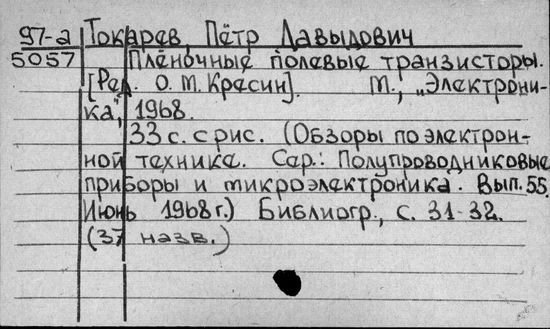 97-а Токарев, Пётр Давыдович
5057 Плёночные полевые транзисторы.
[Ред. О. М. Кресин]. М., „Электрони-
ка", 1968.
33 с. с рис. (Обзоры по электрон-
ной технике. Сер.: Полупроводниковые
приборы и микроэлектроника. Вып. 55.
Июнь 1968 г.) Библиогр., с. 31-32.
(37 назв.)